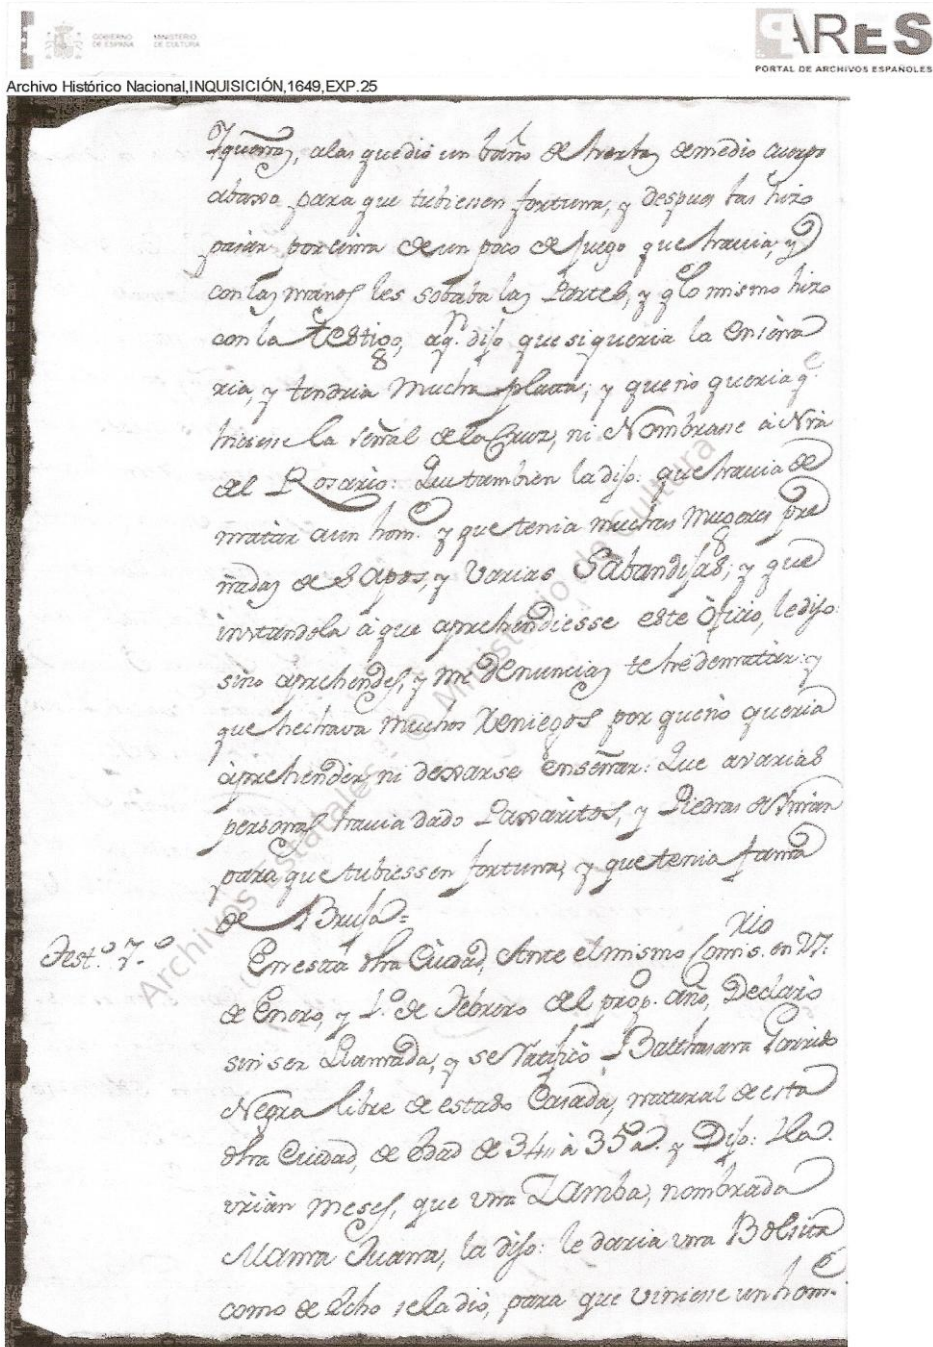 GOBIERNO DE ESPAÑA
MINISTERIO DE CULTURA
PARES
PORTAL DE ARCHIVOS ESPAÑOLES
Archivo Histórico Nacional,INQUISICIÓN,1649,EXP.25
, alas que dio un baño de hierbas de medio cuerpo
abaxo para que tubiesen fortuna, y despues las hizo
pasar por cima de un poco de fuego que havia, y
con las manos les sobaba las Partes, y q lo mismo hizo
con la Testigo, aqn. dijo que si queria la enseña
ria, y tendria mucha plata; y que no queria q.e
hiciese la señal de la Cruz, ni Nombrase à Nrã
del Rosario: Que tambien la dijo: que havia de
matar a un home. y que tenia muchas Mugeres pre
ñadas de Sapos, y varias Sabandijas; y que
instandola à que aprehendiesse este Oficio, le dijo:
sino aprehendes, y me denuncias te he de matar: y
que hechava muchos Reniegos por que no queria
aprehender, ni dexarse enseñar: Que a varias
personas havia dado Paxaritos, y Piedras de Yman
para que tubiessen fortuna, y que tenia fama
de Bruja=
Test.o 7.o
En esta dha Ciudad, Ante el mismo Comis.rio en 27.
de Enero, y 1.o de Febrero del prop.o año, Declarò
sin ser llamada, y se ratificò Balthasara Garrido
Negra libre de estado Casada, natural de esta
dha Ciudad, de edad de 34,, à 35 a.s y Dijo: Ha.
vrian meses, que una Zamba, nombrada
Mama Juana, la dijo: le daria una Bolsita
como de echo se la dio, para que viniese un home.
Archivos Estatales © Ministerio de Cultura